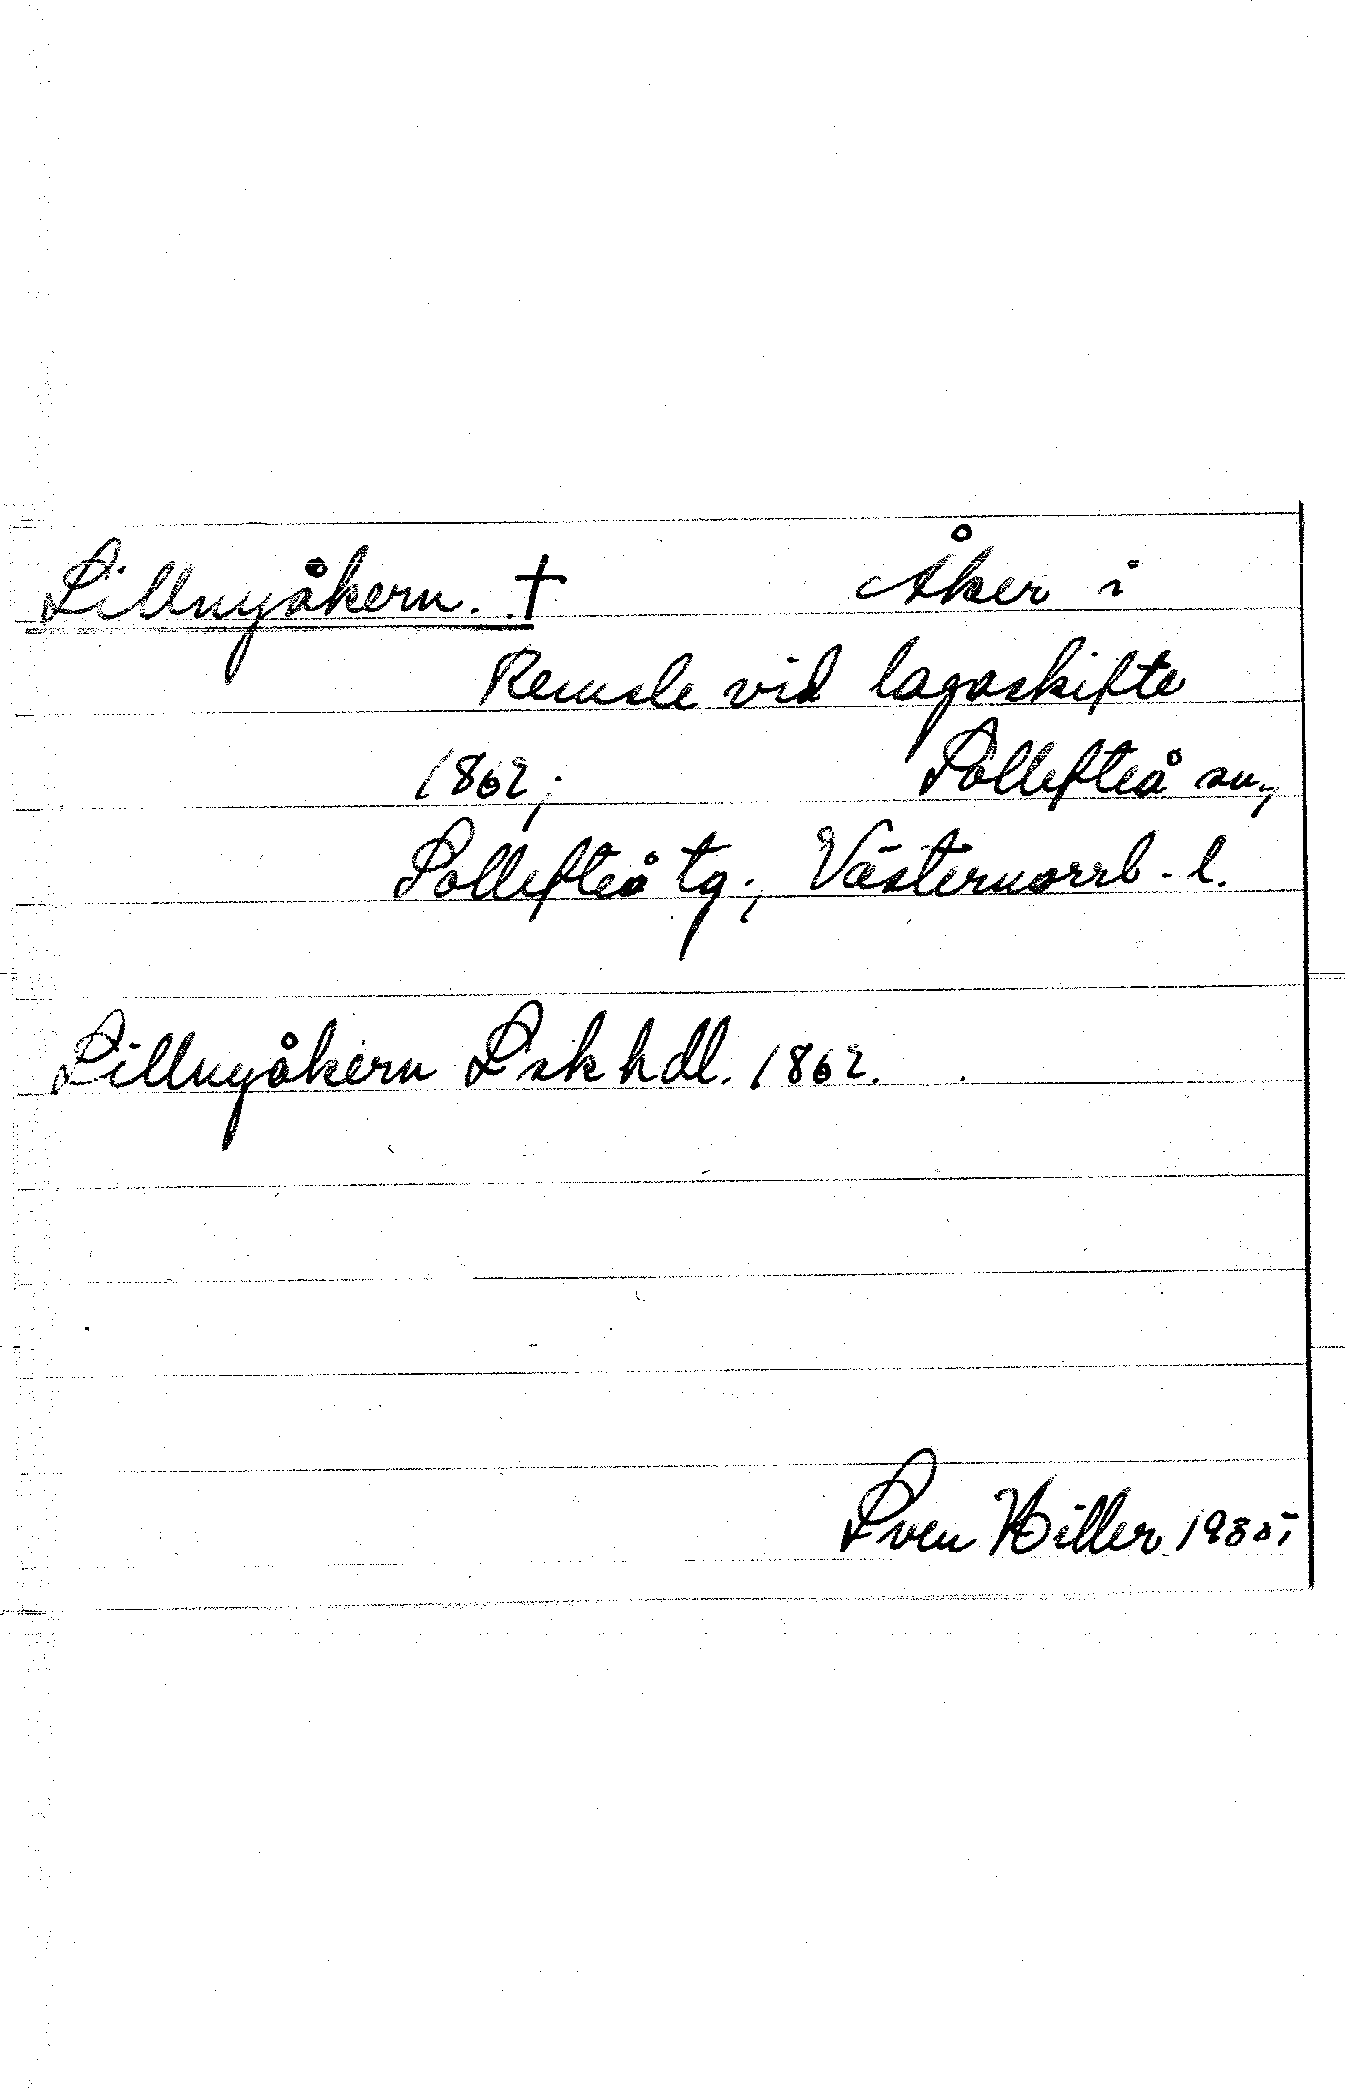 Lillnyåkern. † Åker i
Remsle vid lagaskifte
1862; Sollefteå sn.,
Sollefteå tg.; Västernorrl. l.
Lillnyåkern Lskhdl. 1862.
Sven Hiller